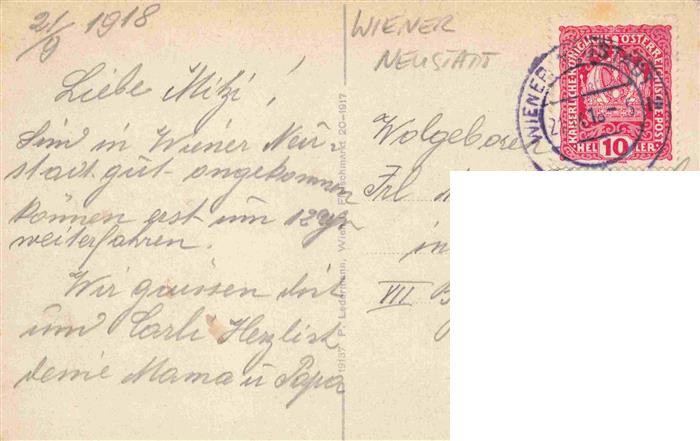 21/9 1918
Liebe Mitzi!
Sind in Wiener Neu-
stadt gut angekommen
können erst um 12 Uhr
weiterfahren.
Wir grüssen dich
und Carli Herzlich
deine Mama u Papa
19137 P. Ledermann, Wien I. Fleischmarkt 20-1917
WIENER
NEUSTADT
KAISERLICHE KÖNIGLICHE ÖSTERREICHISCHE POST
HELLER 10
WIENER NEUSTADT
Wolgeboren
Frl
in
VII